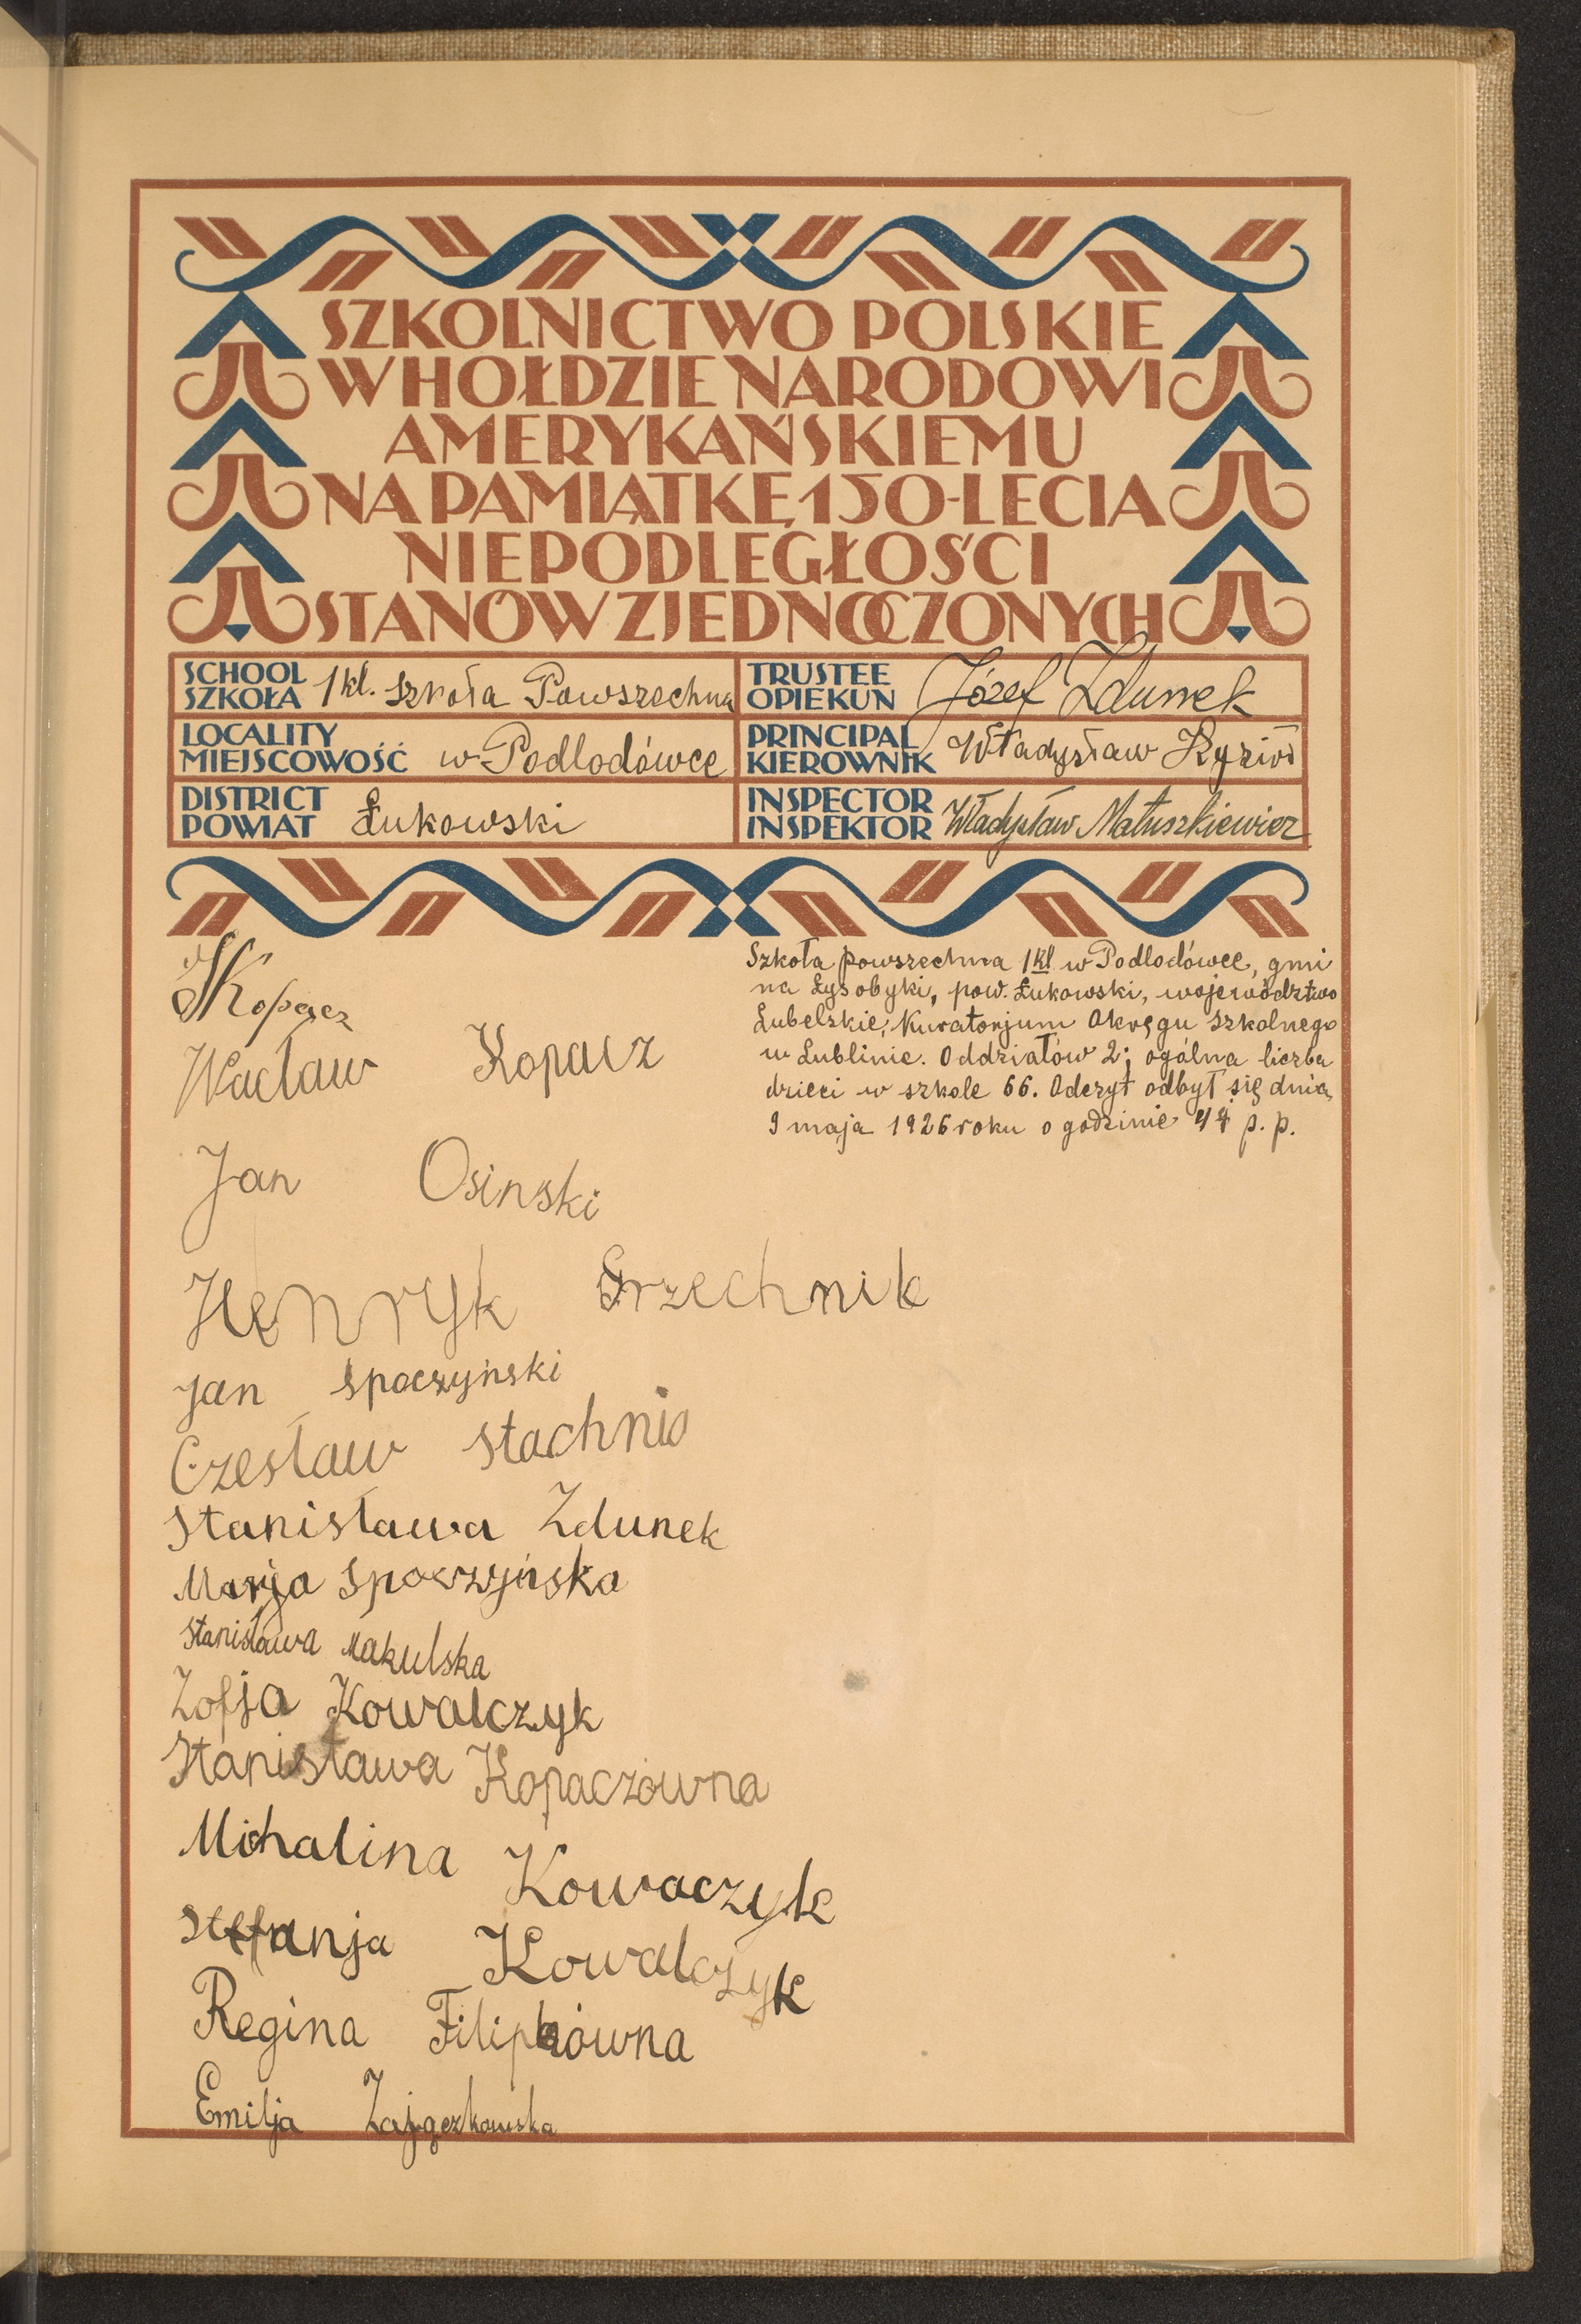 SZKOLNICTWO POLSKIE
W HOŁDZIE NARODOWI
AMERYKAŃSKIEMU
NA PAMIĄTKĘ 150-LECIA
NIEPODLEGŁOŚCI
STANÓW ZJEDNOCZONYCH
SCHOOL
SZKOŁA 1 kl. Szkoła Powszechna
TRUSTEE
OPIEKUN Józef Zdunek
LOCALITY
MIEJSCOWOŚĆ w Podlodówce
PRINCIPAL
KIEROWNIK Władysław
DISTRICT
POWIAT Łukowski
INSPECTOR
INSPEKTOR Władysław Matuszkiewicz
Szkoła powszechna 1 kl w Podlodówce, gmi
na Łysobyki, pow. Łukowski, województwo
Lubelskie, Kuratorjum Okręgu Szkolnego
w Lublinie. Oddziałów 2; ogólna liczba
dzieci w szkole 66. Odczyt odbył się dnia
9 maja 1926 roku o godzinie p. p.
Kopacz
Wacław Kopacz
Jan Osinski
Henryk Grzechnik
Jan Spoczyński
Czesław Stachnio
Stanisława Zdunek
Marja Spoczyńska
Stanisława Makulska
Zofja Kowalczyk
Stanisława Kopaczówna
Michalina Kowaczyk
Stefanja Kowalczyk
Regina Filipkówna
Emilja Zajączkowska